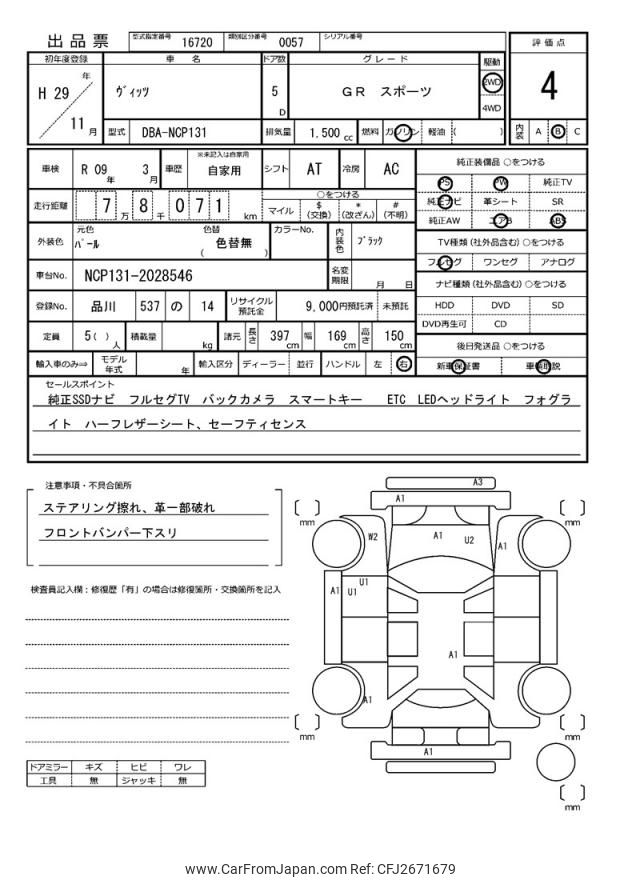 出品票 型式指定番号 16720 類別区分番号 0057 シリアル番号
初年度登録 車名 ドア数 グレード 駆動 評価点
H 29 年 11 月 ヴィッツ 5 D GR スポーツ 2WD 4WD 4
型式 DBA-NCP131 排気量 1.500 cc 燃料 ガソリン 軽油 ( ) 内装 A B C
車検 R 09 年 3 月 車歴 ※未記入は自家用 自家用 シフト AT 冷房 AC
純正装備品 ○をつける
PS PW 純正TV
純正ナビ 革シート SR
純正AW エアB ABS
走行距離 7 万 8 千 0 7 1 km ○をつける
マイル $ (交換) * (改ざん) # (不明)
外装色 元色 パール 色替 色替無 ( ) カラーNo. 内装色 ブラック
TV種類 (社外品含む) ○をつける
フルセグ ワンセグ アナログ
車台No. NCP131-2028546 名変期限 月 日
ナビ種類 (社外品含む) ○をつける
HDD DVD SD
DVD再生可 CD
登録No. 品川 537 の 14 リサイクル預託金 9,000円預託済 未預託
定員 5( ) 人 積載量 kg 諸元 長さ 397 cm 幅 169 cm 高さ 150 cm
後日発送品 ○をつける
新車保証書 車輌取説
輸入車のみ⇒ モデル年式 年 輸入区分 ディーラー 並行 ハンドル 左 右
セールスポイント
純正SSDナビ フルセグTV バックカメラ スマートキー ETC LEDヘッドライト フォグラ
イト ハーフレザーシート、セーフティセンス
注意事項・不具合箇所
ステアリング擦れ、革一部破れ
フロントバンパー下スリ
検査員記入欄:修復歴「有」の場合は修復箇所・交換箇所を記入
A3
A1
mm mm
W2 A1 U2 A1
U1
A1 U1
A1
A1
mm mm
A1
mm
ドアミラー キズ ヒビ ワレ
工具 無 ジャッキ 無
www.CarFromJapan.com Ref: CFJ2671679